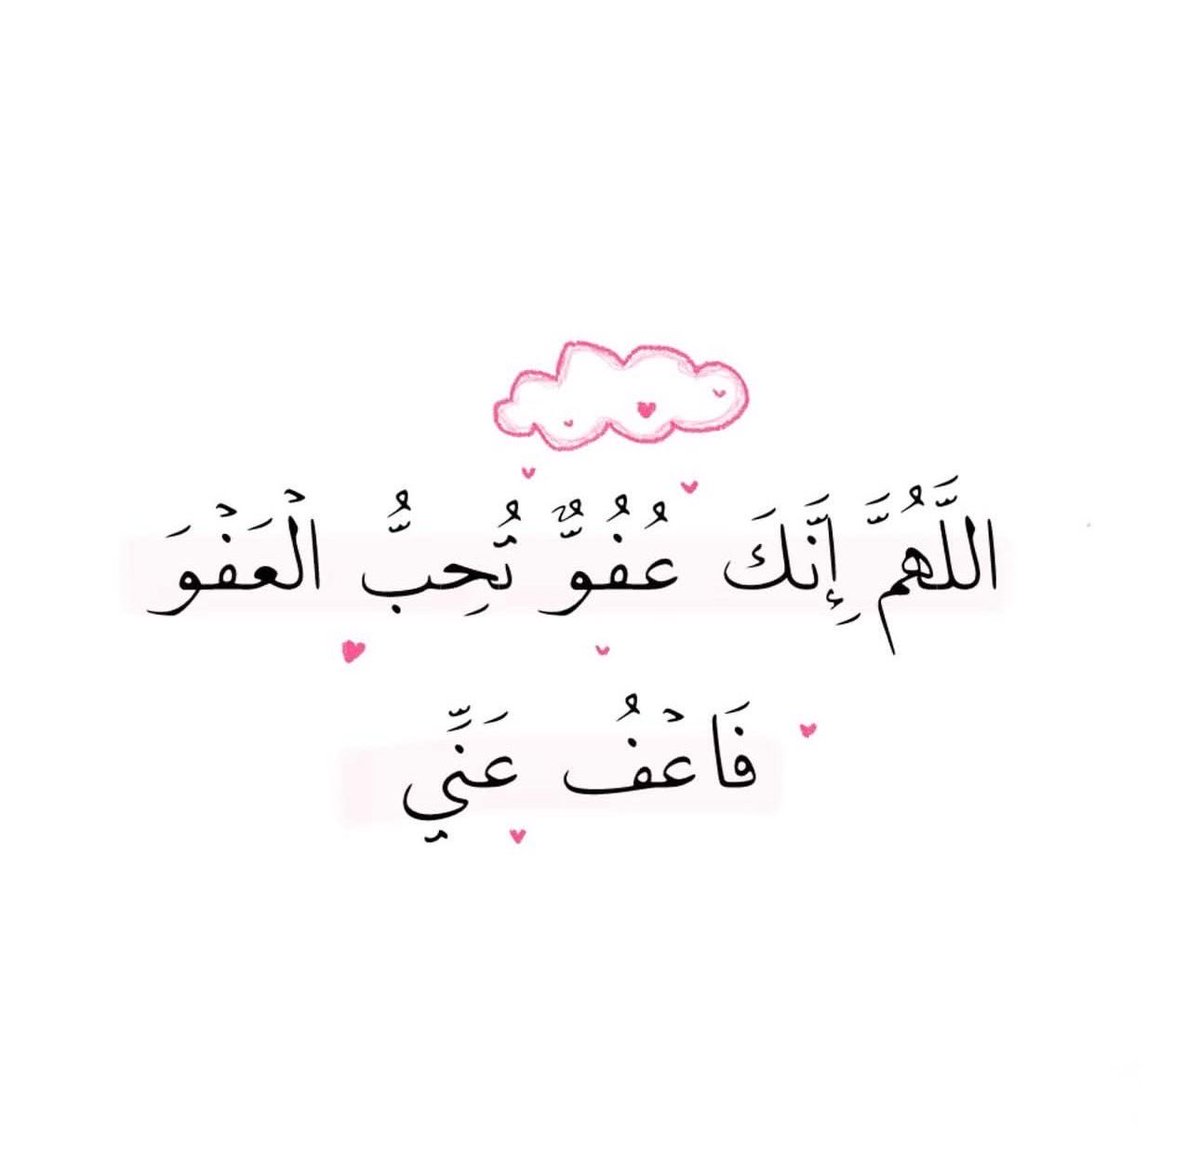 اللَّهُمَّ إِنَّكَ عُفُوٌّ تُحِبُّ الْعَفْوَ
فَاعْفُ عَنِّي